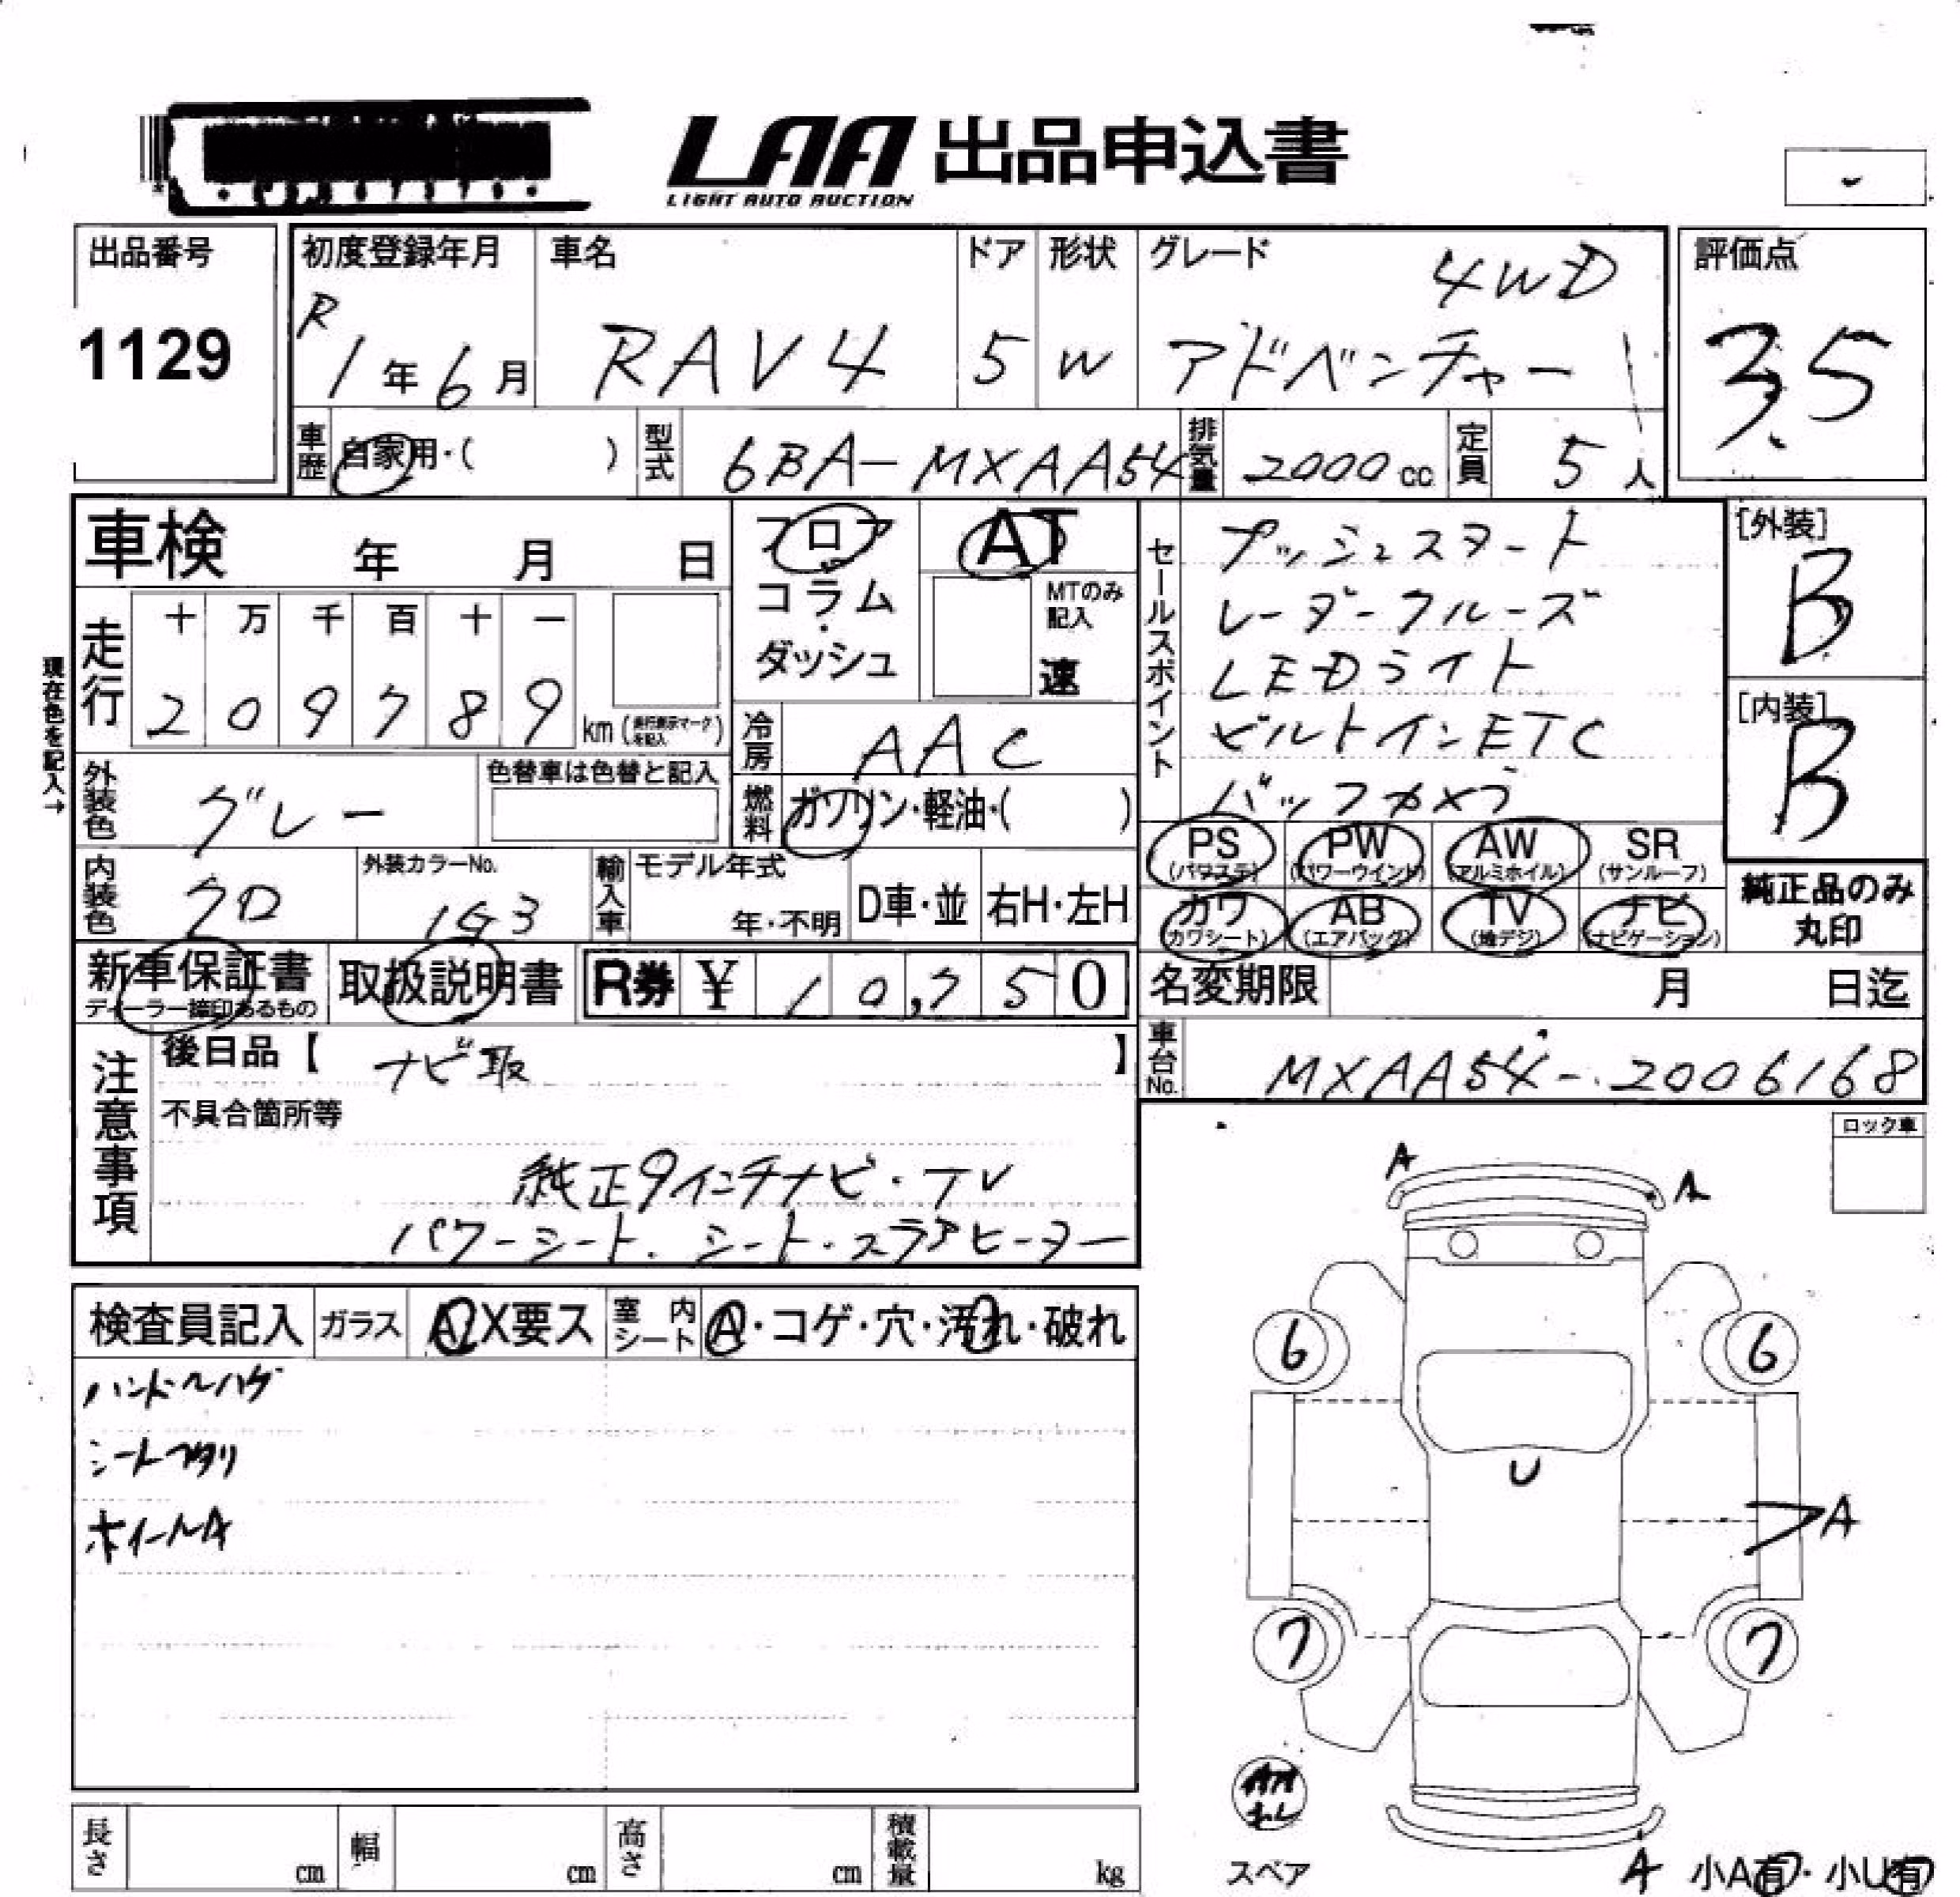 LAA 出品申込書
LIGHT AUTO AUCTION
出品番号
1129
初度登録年月
R
1年6月
車名
RAV4
ドア
5
形状
W
グレード
4WD
アドベンチャー
評価点
3.5
車歴
自家用・( )
型式
6BA-MXAA54
排気量
2000cc
定員
5人
車検 年 月 日
フロア
コラム・
ダッシュ
AT
MTのみ記入
速
セールスポイント
プッシュスタート
レーダークルーズ
LEDライト
ビルトインETC
バックカメラ
[外装]
B
[内装]
B
現在色を記入→
走行
十 万 千 百 十 一
2 0 9 7 8 9
km(走行表示マークを記入)
冷房
AAC
外装色
グレー
色替車は色替と記入
燃料
ガソリン・軽油・( )
内装色
クロ
外装カラーNo.
1G3
輸入車
モデル年式
年・不明
D車・並
右H・左H
PS (パワステ)
PW (パワーウインド)
AW (アルミホイル)
SR (サンルーフ)
カワ (カワシート)
AB (エアバッグ)
TV (地デジ)
ナビ (ナビゲーション)
純正品のみ
丸印
新車保証書
ディーラー捺印あるもの
取扱説明書
R券 ¥ 10,750
名変期限 月 日迄
注意事項
後日品【 ナビ取 】
不具合箇所等
純正9インチナビ・TV
パワーシート.シート・ステアヒーター
車台No.
MXAA54-2006168
ロック車
検査員記入
ガラス
A X要ス
室内シート
A・コゲ・穴・汚れ・破れ
ハンドルハゲ
シート
ホイールA
A
A
6
6
U
A
7
7
スペア
A
小A有・小U有
長さ cm
幅 cm
高さ cm
積載量 kg